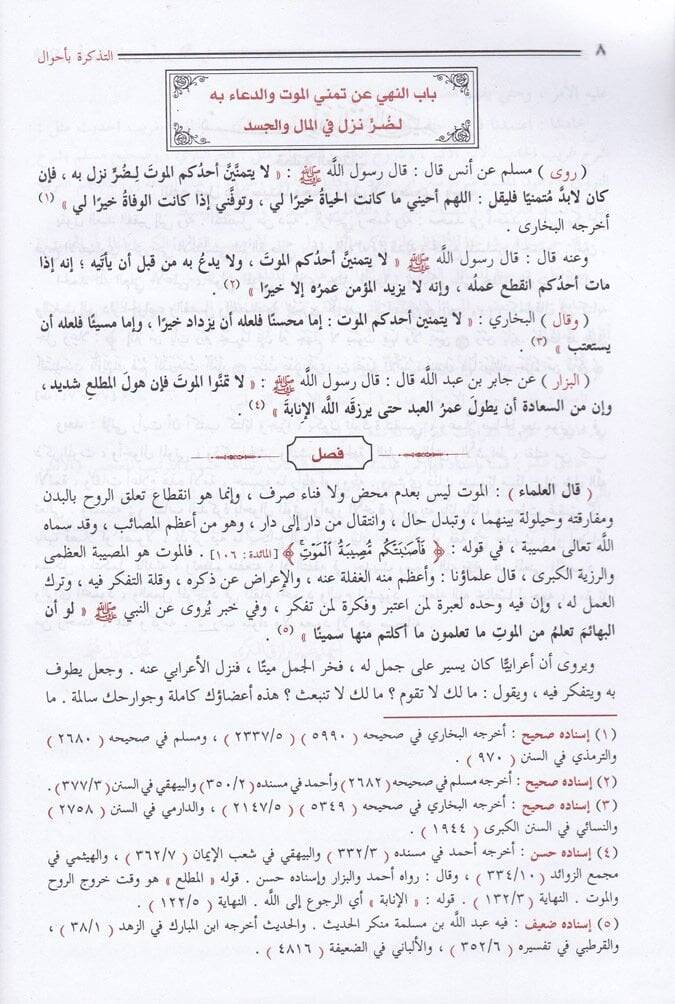 ٨
التذكرة بأحوال
باب النهي عن تمني الموت والدعاء به
لضُرّ نزل في المال والجسد
( روى ) مسلم عن أنس قال : قال رسول اللَّه ﷺ : « لا يتمنَّينَّ أحدُكم الموتَ لِضُرٍّ نزل به ، فإن
كان لابدَّ مُتمنيًا فليقل : اللهم أحيني ما كانت الحياةُ خيرًا لي ، وتوفَّني إذا كانت الوفاةُ خيرًا لي » (١)
أخرجه البخارى .
وعنه قال : قال رسول اللَّه ﷺ « لا يتمنينَّ أحدُكم الموتَ ، ولا يدعُ به من قبل أن يأتيَه ؛ إنه إذا
مات أحدُكم انقطع عملُه ، وإنه لا يزيد المؤمن عمرُه إلا خيرًا » (٢)
( وقال ) البخاري : « لا يتمنين أحدكم الموت : إما محسنًا فلعله أن يزداد خيرًا ، وإما مسيئًا فلعله أن
يستعتب » (٣) .
( البزار ) عن جابر بن عبد اللَّه قال : قال رسول اللَّه ﷺ : « لا تمنَّوا الموتَ فإن هولَ المطلعِ شديد ،
وإن من السعادة أن يطولَ عمرُ العبد حتى يرزقَه اللَّه الإنابةَ » (٤) .
فصل
( قال العلماء ) : الموت ليس بعدم محض ولا فناء صرف ، وإنما هو انقطاع تعلق الروح بالبدن
ومفارقته وحيلولة بينهما ، وتبدل حال ، وانتقال من دار إلى دار ، وهو من أعظم المصائب ، وقد سماه
اللَّه تعالى مصيبة ، في قوله : ﴿ فَأَصَٰبَتْكُم مُّصِيبَةُ ٱلْمَوْتِ ﴾ [المائدة : ١٠٦] . فالموت هو المصيبة العظمى
والرزية الكبرى ، قال علماؤنا : وأعظم منه الغفلة عنه ، والإعراض عن ذكره ، وقلة التفكر فيه ، وترك
العمل له ، وإن فيه وحده لعبرة لمن اعتبر وفكرة لمن تفكر ، وفي خبر يُروى عن النبي ﷺ « لو أن
البهائمَ تعلمُ من الموتِ ما تعلمون ما أكلتم منها سمينًا » (٥) .
ويروى أن أعرابيًّا كان يسير على جمل له ، فخر الجمل ميتًا ، فنزل الأعرابي عنه . وجعل يطوف
به ويتفكر فيه ، ويقول : ما لك لا تقوم ؟ ما لك لا تنبعث ؟ هذه أعضاؤك كاملة وجوارحك سالمة . ما
(١) إسناده صحيح : أخرجه البخاري في صحيحه ( ٥٩٩٠) (٢٣٣٧/٥ ) ، ومسلم في صحيحه ( ٢٦٨٠ )
والترمذي في السنن ( ٩٧٠ ) .
(٢) إسناده صحيح : أخرجه مسلم في صحيحه (٢٦٨٢) وأحمد في مسنده (٣٥٠/٢) والبيهقي في السنن (٣٧٧/٣) .
(٣) إسناده صحيح : أخرجه البخاري في صحيحه ( ٥٣٤٩ ) (٢١٤٧/٥ ) ، والدارمي في السنن ( ٢٧٥٨ )
والنسائي في السنن الكبرى ( ١٩٤٤ ) .
(٤) إسناده حسن : أخرجه أحمد في مسنده ( ٣٣٢/٣ ) والبيهقي في شعب الإيمان ( ٣٦٢/٧ ) ، والهيثمي في
مجمع الزوائد ( ٣٣٤/١٠ ) ، وقال : رواه أحمد والبزار وإسناده حسن . قوله « المطلع » هو وقت خروج الروح
والموت . النهاية ( ١٣٢/٣ ) . قوله : « الإنابة » أي الرجوع إلى اللَّه . النهاية ( ١٢٢/٥ ) .
(٥) إسناده ضعيف : فيه عبد اللَّه بن مسلمة منكر الحديث . والحديث أخرجه ابن المبارك في الزهد ( ٣٨/١ ) ،
والقرطبي في تفسيره ( ٣٥٢/٦ ) ، والألباني في الضعيفة ( ٤٨١٦ ) .